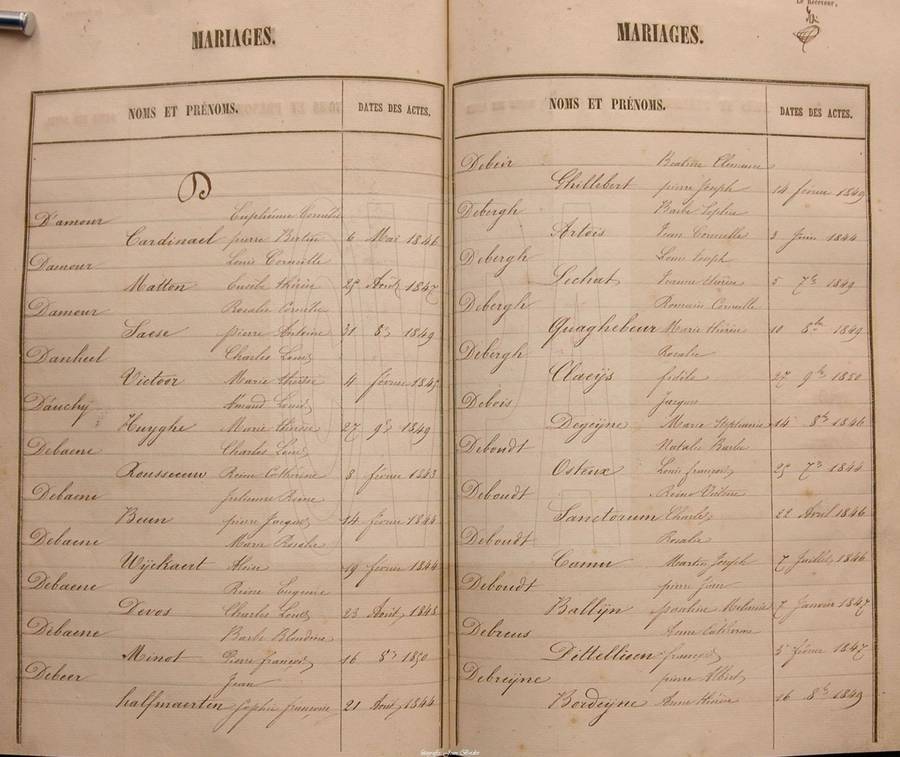 MARIAGES.
NOMS ET PRÉNOMS. DATES DES ACTES.
D
D'amour Euphémie Cornélie
Cardinael pierre Bertin 6 Mai 1846
Damour Louis Corneille
Matton Thérèse 29 Août 1847
Damour Rosalie Cornélie
Saese pierre Antoine 31 8bre 1849
Danheel Charles Louis
Victoor Marie thérèse 4 février
D'auchy Louis
Huyghe Marie thérèse 27 9bre 1849
Debaene Charles Louis
Rousseeuw Reine Cathérine 8 février 1843
Debaene Julienne Reine
Beun pierre Jacques 14 février 1844
Debaene Marie Rosalie
Wyckaert 19 février 1844
Debaene Reine Eugenie
Devos Charles Louis 23 Août 1848
Debaene Barbe Blondine
Minot Pierre françois 16 1850
Debeer Jean
halfmaerten Sophie françoise 21 Août 1844
Le Receveur,
MARIAGES.
NOMS ET PRÉNOMS. DATES DES ACTES.
Debeir Clemence
Ghillebert pierre Joseph 14 février 1849
Debergh Barbe Sophie
Artois Jean Corneille 3 Juin 1844
Debergh Louis Joseph
Lechat 5 7bre 1849
Debergh Romain Corneille
Quaghebeur Marie thérèse 10 1849
Debergh Rosalie
Claeijs fidèle 27 9bre 1850
Debois Jacques
Degeijne Marie Stephanie 14 8bre 1846
Deboudt Natalie Barbe
Osteux Louis françois 29 7bre 1844
Deboudt Reine
Sanctorum Charles 22 Avril 1846
Deboudt Rosalie
Camu Martin Joseph 7 Juillet 1846
Deboudt pierre Jean
Ballijn pauline Melanie 7 Janvier 1847
Debreus Anne Catherine
Dittellisen françois 5 février 1847
Debreijne pierre Albert
Bordeijne Anne thérèse 16 8bre 1849